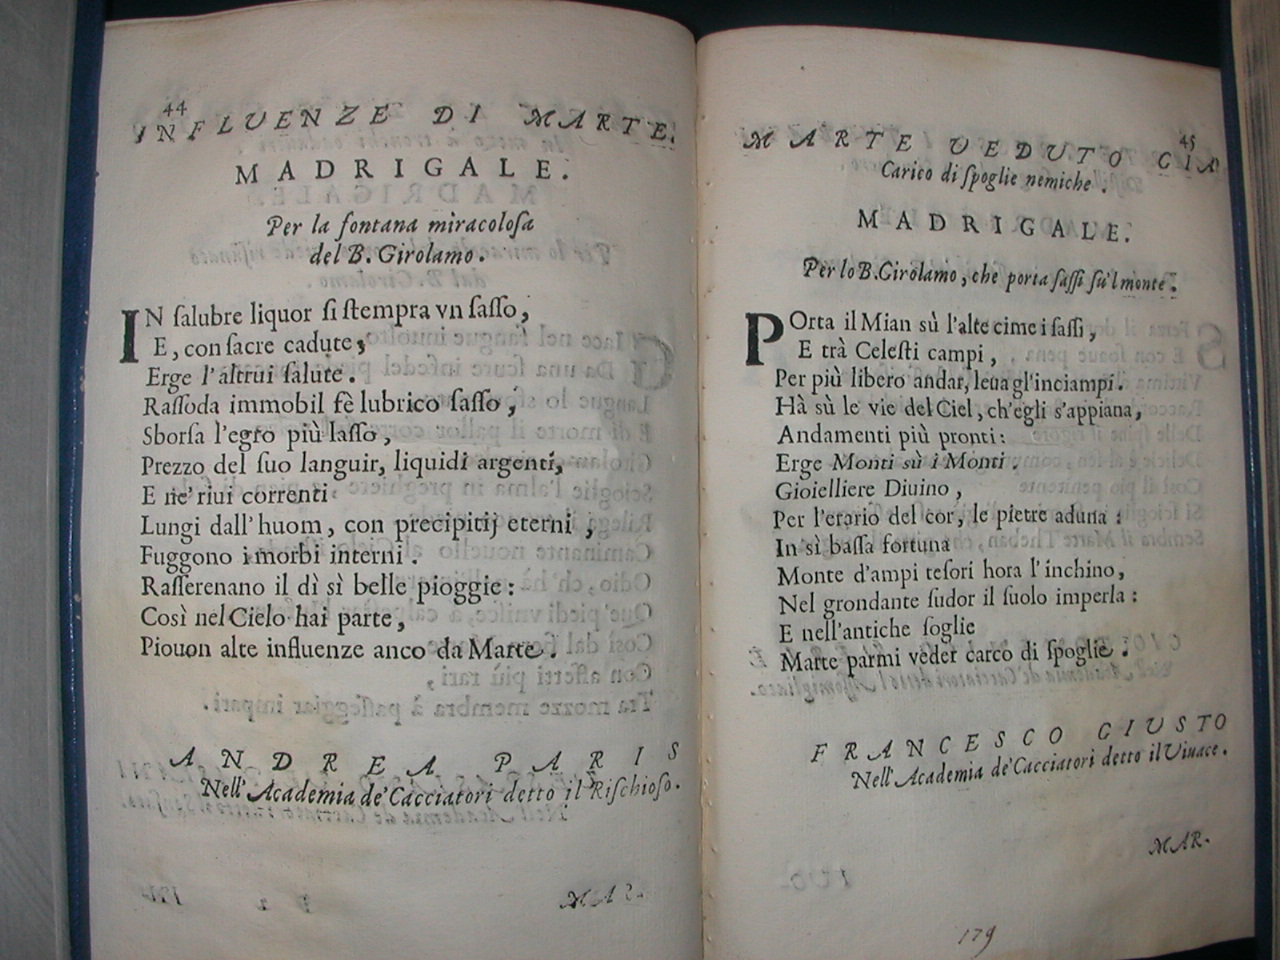 44
INFLUENZE DI MARTE.
MADRIGALE.
Per la fontana miracolosa
del B. Girolamo.
IN ſalubre liquor ſi ſtempra vn ſaſſo,
E, con ſacre cadute,
Erge l'altrui ſalute.
Raſſoda immobil fè lubrico ſaſſo,
Sborſa l'egro più laſſo,
Prezzo del ſuo languir, liquidi argenti,
E ne' riui correnti
Lungi dall'huom, con precipitij eterni,
Fuggono i morbi interni.
Raſſerenano il dì sì belle pioggie:
Così nel Cielo hai parte,
Piouon alte influenze anco da Marte.
ANDREA PARIS
Nell'Academia de'Cacciatori detto il Riſchioſo.
MAR-
45
MARTE VEDUTO GIA
Carico di ſpoglie nemiche.
MADRIGALE.
Per lo B. Girolamo, che porta ſaſſi ſu'l monte.
POrta il Mian sù l'alte cime i ſaſſi,
E trà Celeſti campi,
Per più libero andar, leua gl'inciampi.
Hà sù le vie del Ciel, ch'egli s'appiana,
Andamenti più pronti:
Erge Monti sù i Monti.
Gioielliere Diuino,
Per l'erario del cor, le pietre aduna:
In sì baſſa fortuna
Monte d'ampi teſori hora l'inchino,
Nel grondante ſudor il ſuolo imperla:
E nell'antiche ſoglie
Marte parmi veder carco di ſpoglie.
FRANCESCO GIUSTO
Nell'Academia de'Cacciatori detto il Viuace.
MAR-
179